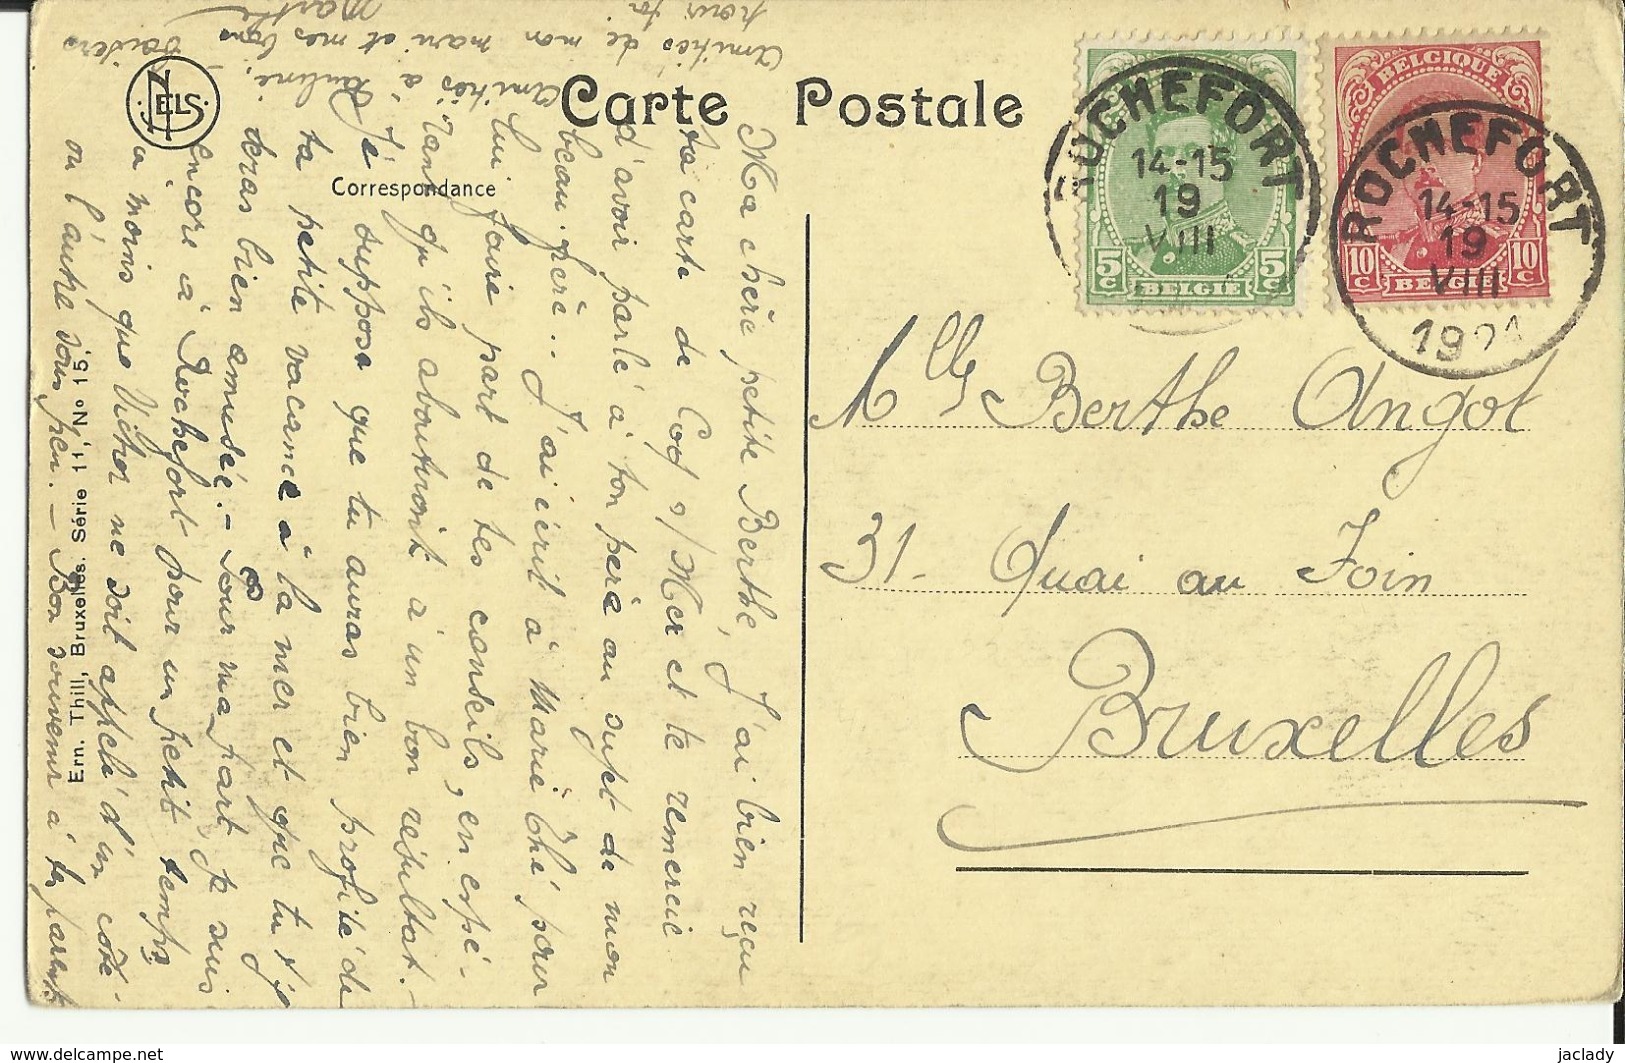 Carte Postale
Correspondance
NELS
Ern. Thill, Bruxelles. Série 11, No 15.
BELGIQUE
5 c 5 c
BELGIË
10 c 10 c
BELGIE
ROCHEFORT
14-15
19
VIII
ROCHEFORT
14-15
19
VIII
1921
Mlle Berthe Angot
31 - Quai au Foin
Bruxelles
Ma chère petite Berthe, J'ai bien reçu
ta carte de Cod s/Mer et te remercie
d'avoir parlé à ton père au sujet de mon
beau-père.. J'ai écrit à Marie Thé pour
lui faire part de tes conseils, en espé-
rant qu'ils aboutiront à un bon résultat.-
Je suppose que tu auras bien profité de
ta petite vacance à la mer et que tu t'y
seras bien amusée.- Pour ma part je suis
encore à Rochefort pour un petit temps
à moins que Victor ne soit appelé d'un côté
ou l'autre sous peu. - Bon souvenir à tes parents
Amitiés à Pauline,
Amitiés de mon mari et mes bons baisers
pour toi
Marthe